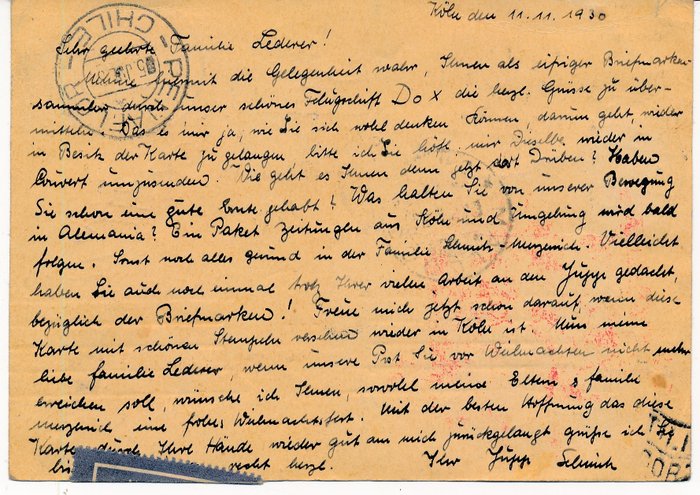 Köln den 11.11.1930
Sehr geehrte Familie Lederer!
Nehme hiermit die Gelegenheit wahr, Ihnen als eifriger Briefmarken-
sammler durch unser schönes Flugschiff Do X die herzl. Grüsse zu über-
mitteln. Das es mir ja, wie Sie sich wohl denken können, darum geht wieder
in Besitz der Karte zu gelangen, bitte ich Sie höfl. mir Dieselbe wieder in
Couvert umzusenden. Wie geht es Ihnen denn jetzt dort Drüben? Haben
Sie schon eine gute Ernte gehabt? Was halten Sie von unserer Bewegung
in Alemania? Ein Paket Zeitungen aus Köln und Umgebung wird bald
folgen. Sonst noch alles gesund in der Familie Vielleicht
haben Sie auch noch einmal trotz Ihrer vielen Arbeit an den Jupp gedacht,
bezüglich der Briefmarken! Freue mich jetzt schon darauf, wenn diese
Karte mit schönen Stempeln versehen wieder in Köln ist. Nun meine
liebe Familie Lederer, wenn unsere Post Sie vor Weihnachten nicht mehr
erreichen soll, wünsche ich Ihnen, sowohl meine Eltern & Familie
eine frohes Weihnachtsfest. Mit der besten Hoffnung das diese
Karte durch Ihre Hände wieder gut an mich zurückgelangt grüße ich Sie
recht herzl. Ihr Jupp
CHILE